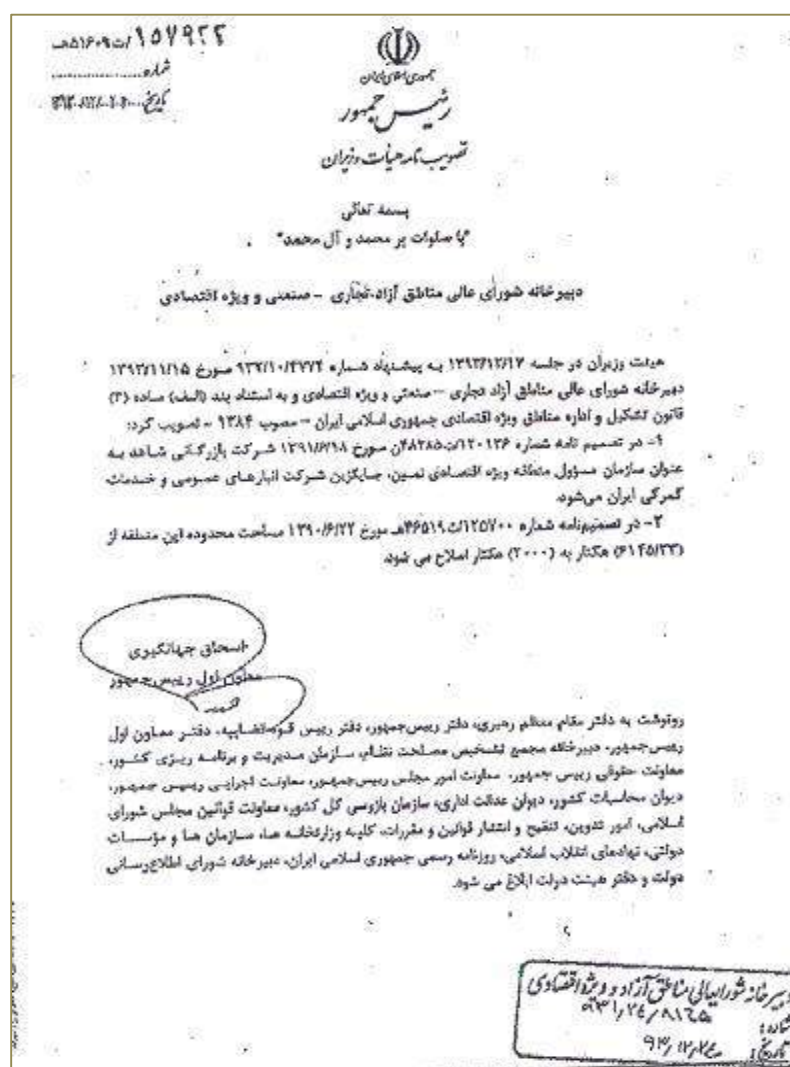 ۱۵۷۹۲۲/ت۵۱۶۰۹هـ
شماره
تاریخ
جمهوری اسلامی ایران
رئیس جمهور
تصویب نامه هیأت وزیران
بسمه تعالی
"با صلوات بر محمد و آل محمد"
دبیرخانه شورای عالی مناطق آزاد تجاری – صنعتی و ویژه اقتصادی
هیئت وزیران در جلسه ۱۳۹۳/۱۲/۱۷ به پیشنهاد شماره ۹۳۲/۱۰/۴۷۷۴ مورخ ۱۳۹۳/۱۱/۱۵
دبیرخانه شورای عالی مناطق آزاد تجاری – صنعتی و ویژه اقتصادی و به استناد بند (الف) ماده (۳)
قانون تشکیل و اداره مناطق ویژه اقتصادی جمهوری اسلامی ایران – مصوب ۱۳۸۴ – تصویب کرد:
۱– در تصمیم نامه شماره ۱۲۰۱۳۶/ت۴۸۲۸۵ن مورخ ۱۳۹۱/۶/۱۸ شرکت بازرگانی شاهد به
عنوان سازمان مسؤول منطقه ویژه اقتصادی نمین، جایگزین شرکت انبارهای عمومی و خدمات
گمرکی ایران می‌شود.
۲– در تصمیم‌نامه شماره ۱۲۵۷۰۰/ت۴۶۵۱۹هـ مورخ ۱۳۹۰/۶/۲۲ مساحت محدوده این منطقه از
(۶۱۴۵/۳۳) هکتار به (۲۰۰۰) هکتار اصلاح می شود.
اسحاق جهانگیری
معاون اول رییس جمهور
رونوشت به دفتر مقام معظم رهبری، دفتر رییس‌جمهور، دفتر رییس قوه‌قضاییه، دفتر معاون اول
رییس‌جمهور، دبیرخانه مجمع تشخیص مصلحت نظام، سازمان مدیریت و برنامه ریزی کشور،
معاونت حقوقی رییس جمهور، معاونت امور مجلس رییس‌جمهور، معاونت اجرایی رییس جمهور،
دیوان محاسبات کشور، دیوان عدالت اداری، سازمان بازرسی کل کشور، معاونت قوانین مجلس شورای
اسلامی، امور تدوین، تنقیح و انتشار قوانین و مقررات، کلیه وزارتخانه ها، سازمان ها و مؤسسات
دولتی، نهادهای انقلاب اسلامی، روزنامه رسمی جمهوری اسلامی ایران، دبیرخانه شورای اطلاع‌رسانی
دولت و دفتر هیئت دولت ابلاغ می شود.
دبیرخانه شورایعالی مناطق آزاد و ویژه اقتصادی
شماره:
تاریخ: